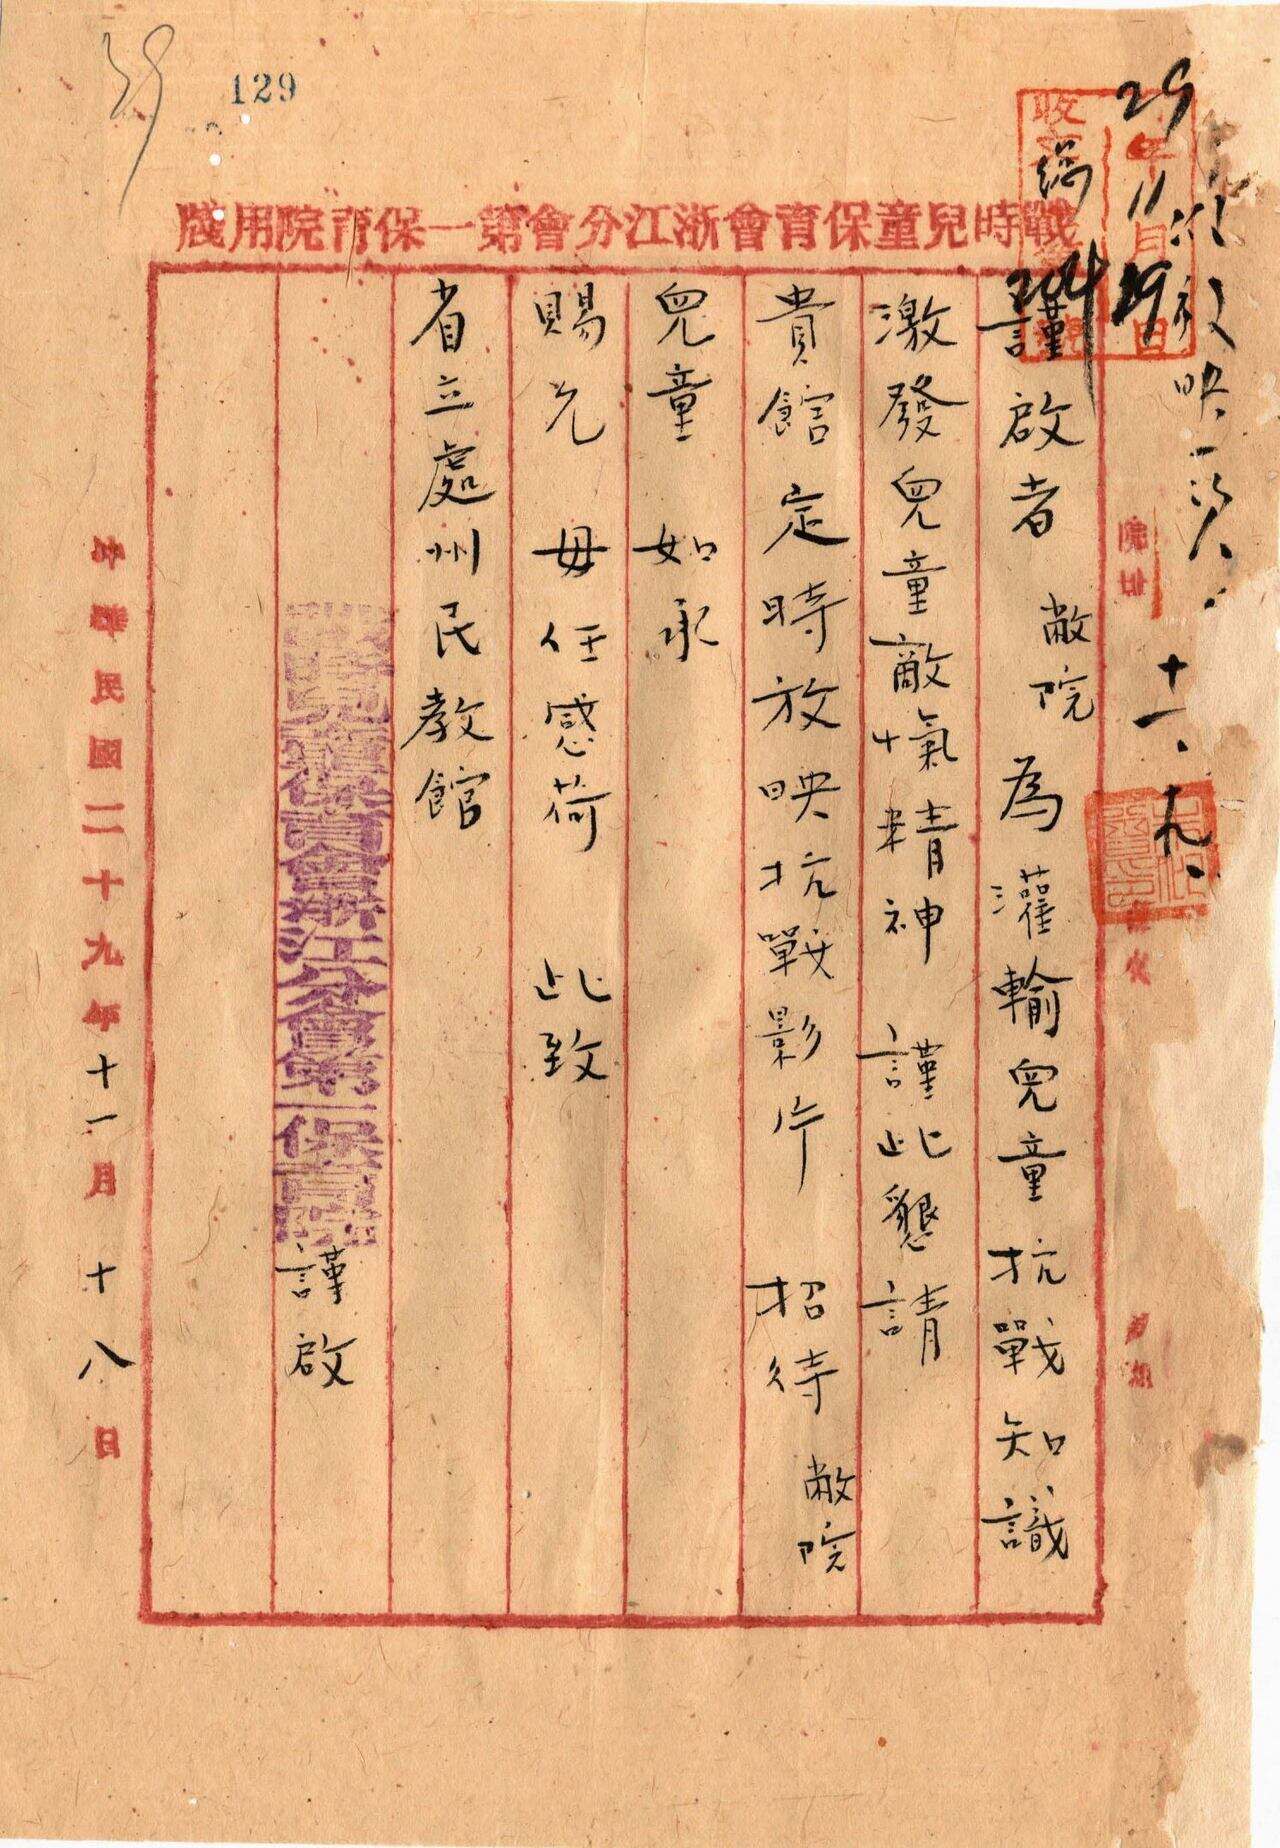 129
29
戰時兒童保育會浙江分會第一保育院用牋
29年11月19日
收文總
204
映一次
十一、十九、
謹啟者 敝院為灌輸兒童抗戰知識
激發兒童敵愾精神 謹此懇請
貴館定時放映抗戰影片 招待敝院
兒童 如承
賜允 毋任感荷 此致
省立處州民教館
戰時兒童保育會浙江分會第一保育院 謹啟
中華民國二十九年十一月十八日